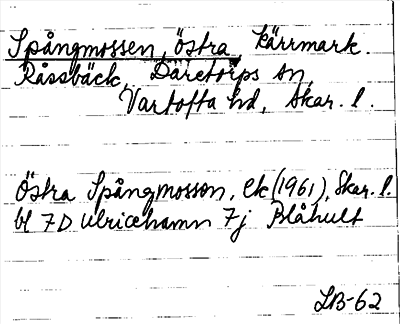 Spångmossen, Östra, kärrmark.
Råssbäck, Däretorps sn,
Vartofta hd, Skar. l.
Östra Spångmosson, ek (1961), Skar. l.
bl 7D Ulricehamn 7j Blåhult
LB-62